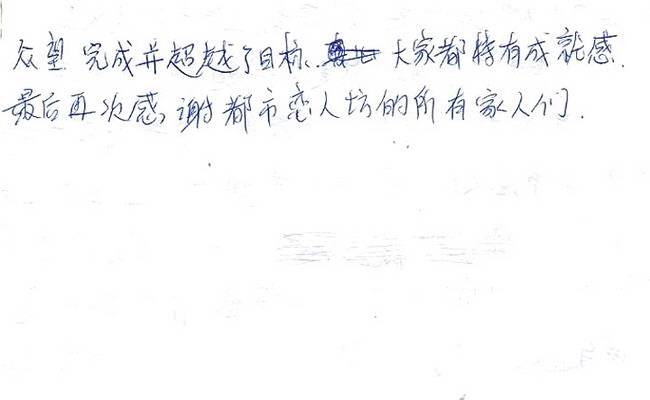 众望 完成并超越了目标、大家都特有成就感.
最后再次感谢都市恋人坊的所有家人们.